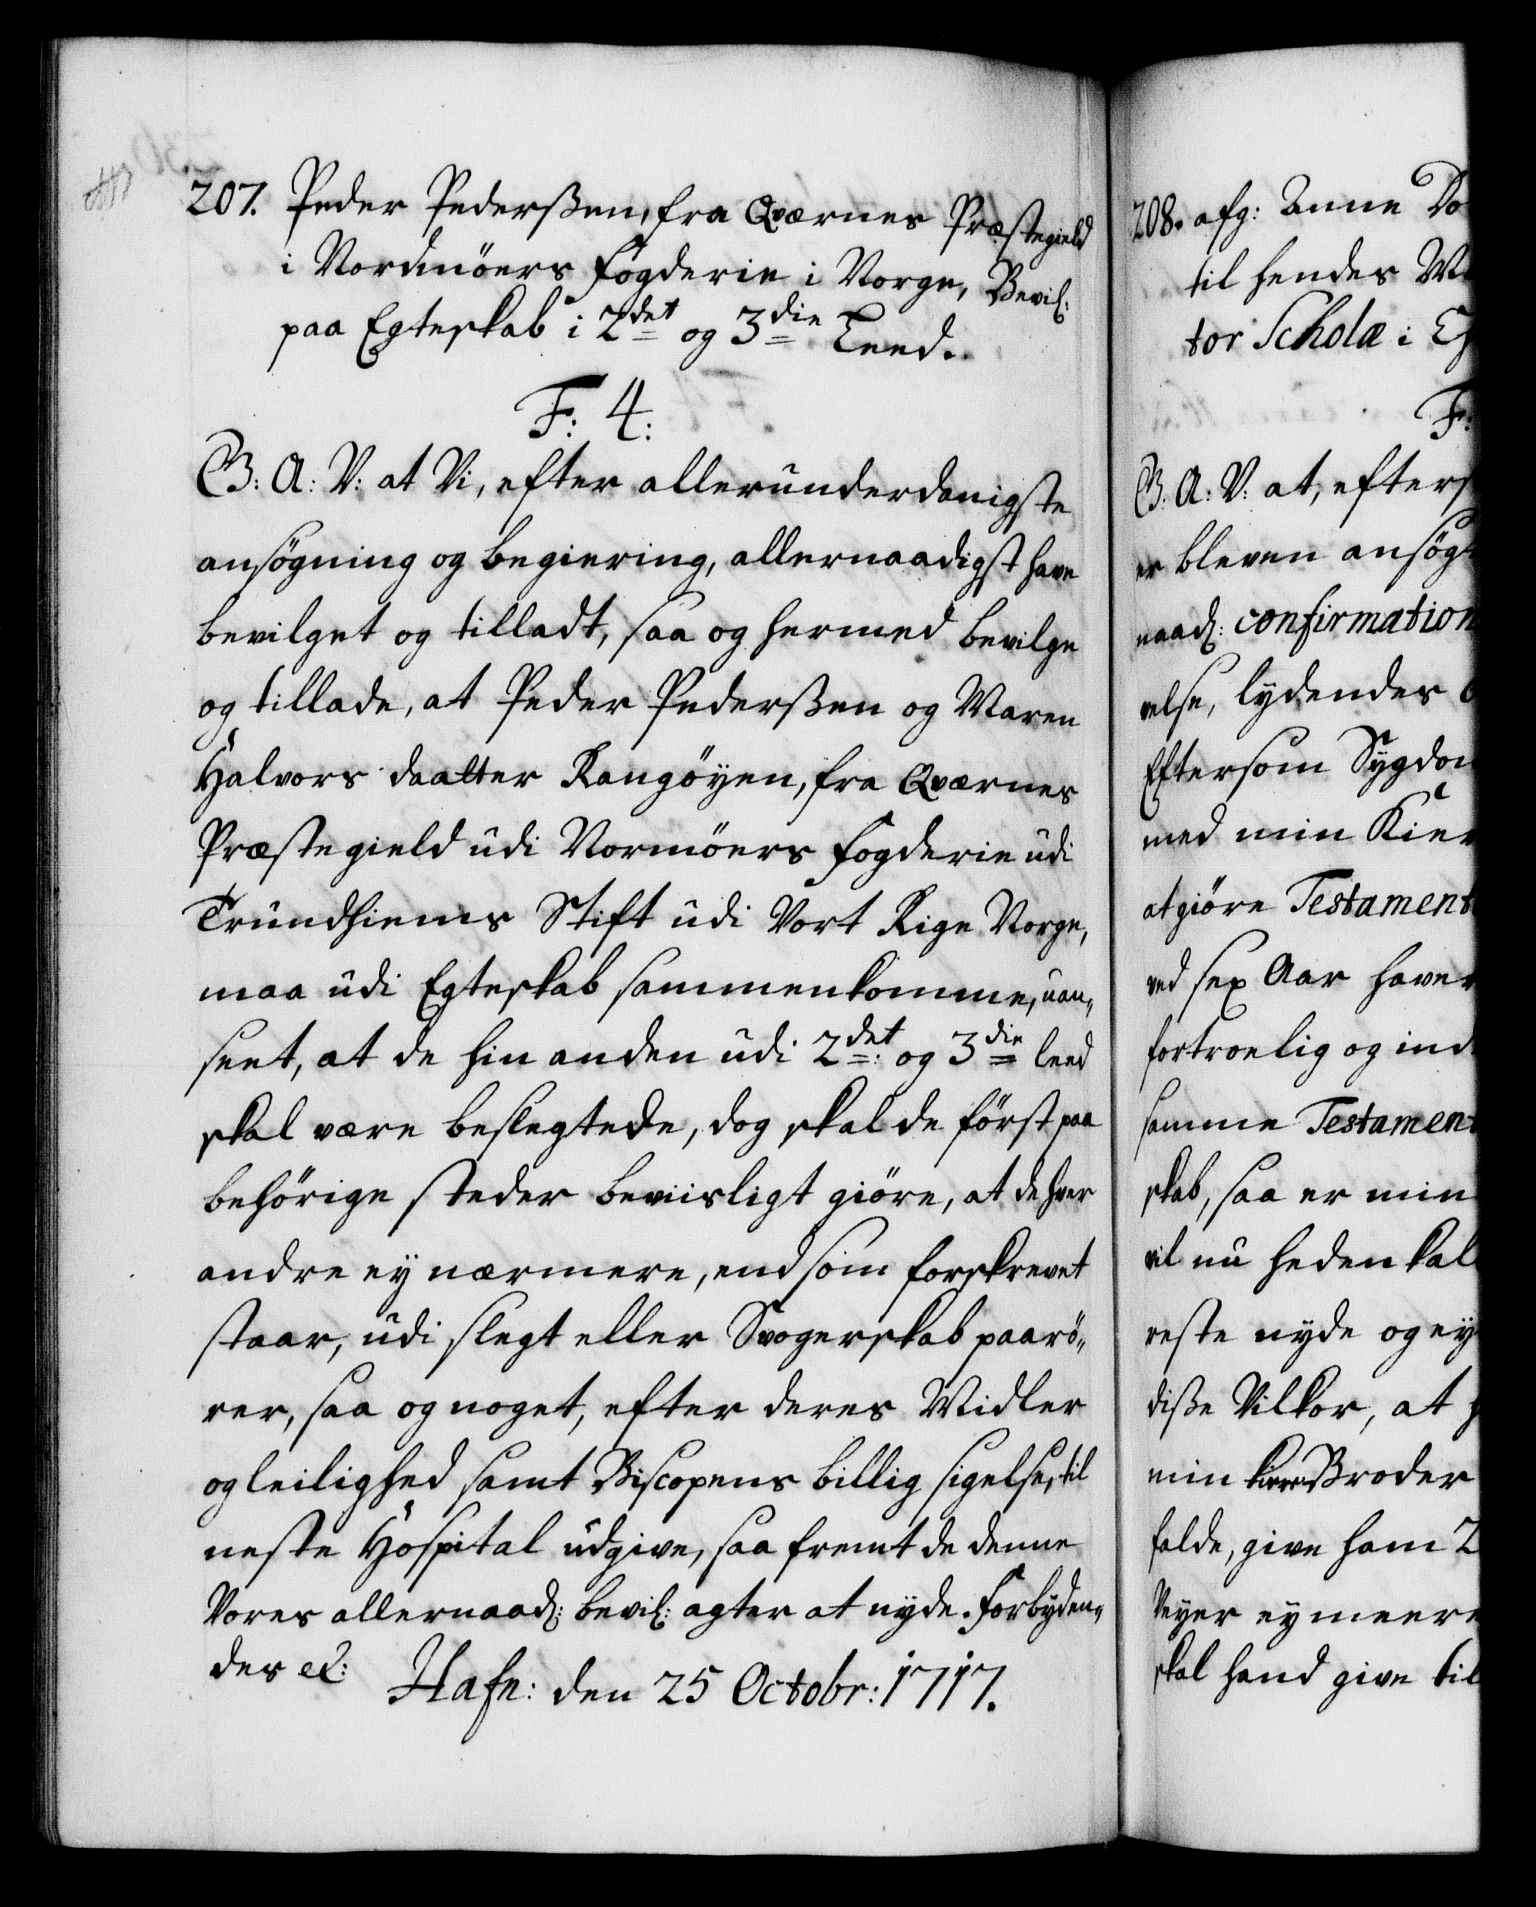 207. Peder Pederßen, fra Qværnes Præstegield
i Nordmöers Fogderie i Norge, Bevil:
paa Egteskab i 2det og 3die Leed.
F: 4:
G: A: V: at Vi, efter allerunderdanigste
ansögning og begiering, allernaadigst have
bevilget og tilladt, saa og hermed bevilge
og tillade, at Peder Pederßen og Maren
Halvors daatter Rangöyen, fra Qværnes
Præstegield udi Normöers Fogderie udi
Trundhiems Stift udi Vort Rige Norge,
maa udi Egteskab sammenkomme, uan,,
seet, at de hin anden udi 2det: og 3die leed
skal være beslegtede, dog skal de först paa
behörige steder beviisligt giöre, at de hver
andre ey nærmere, end som forskrevet
staar, udi slegt eller Svogerskab paarö,,
rer, saa og noget, efter deres Midler
og leilighed samt Biscopens billig sigelse, til
neste Hospital udgive, saa fremt de denne
Vores allernaad: bevil: agter at nyde. Forbyden,,
des etc:
Hafn: den 25 Octobr: 1717.
208. afg: Anne Do
til hendes M
tor Scholæ i
F:
G: A: V: at, efters
er bleven ansögt
naad: confirmation
else, lydendes
Eftersom Sygdom
med min Kier
at giöre Testament
ved sex Aar haver
fortroelig og ind
samme Testament
skab, saa er min
vil nu hedenkal
reste nyde og ey
diße Vilkor, at
min kiere Broder
falde, give ham 2
Veyer ey meere
skal hand give til